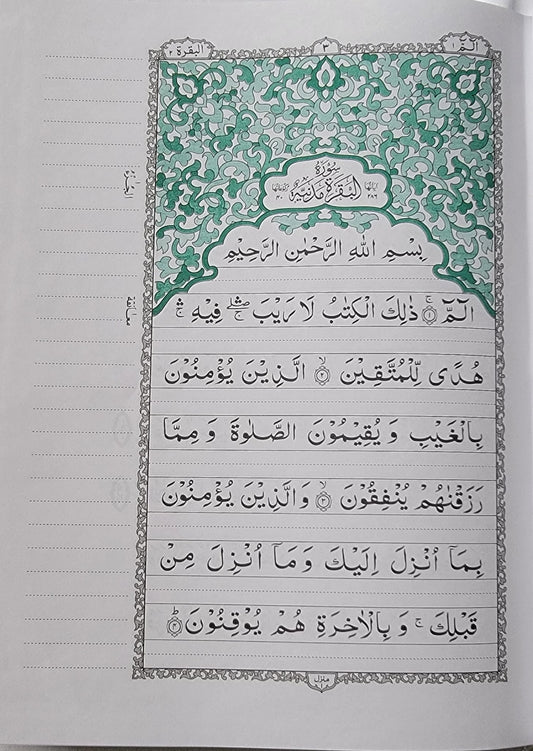 الٓمّٓ ١
٣
البقرة ٢
سُوْرَةُ
الْبَقَرَةِ مَدَنِيَّةٌ
اٰیَاتُهَا ٢٨٦
رُكُوْعَاتُهَا ٤٠
بِسْمِ اللّٰهِ الرَّحْمٰنِ الرَّحِیْمِ
الٓمّٓ ۚ﴿١﴾ ذٰلِكَ الْكِتٰبُ لَا رَیْبَ ۛۖۚ فِیْهِ ۛۚ
هُدًی لِّلْمُتَّقِیْنَ ۙ﴿٢﴾ الَّذِیْنَ یُؤْمِنُوْنَ
بِالْغَیْبِ وَ یُقِیْمُوْنَ الصَّلٰوةَ وَ مِمَّا
رَزَقْنٰهُمْ یُنْفِقُوْنَ ۙ﴿٣﴾ وَالَّذِیْنَ یُؤْمِنُوْنَ
بِمَاۤ اُنْزِلَ اِلَیْكَ وَ مَاۤ اُنْزِلَ مِنْ
قَبْلِكَ ۚ وَ بِالْاٰخِرَةِ هُمْ یُوْقِنُوْنَ ؕ﴿٤﴾
معانقة
منزل